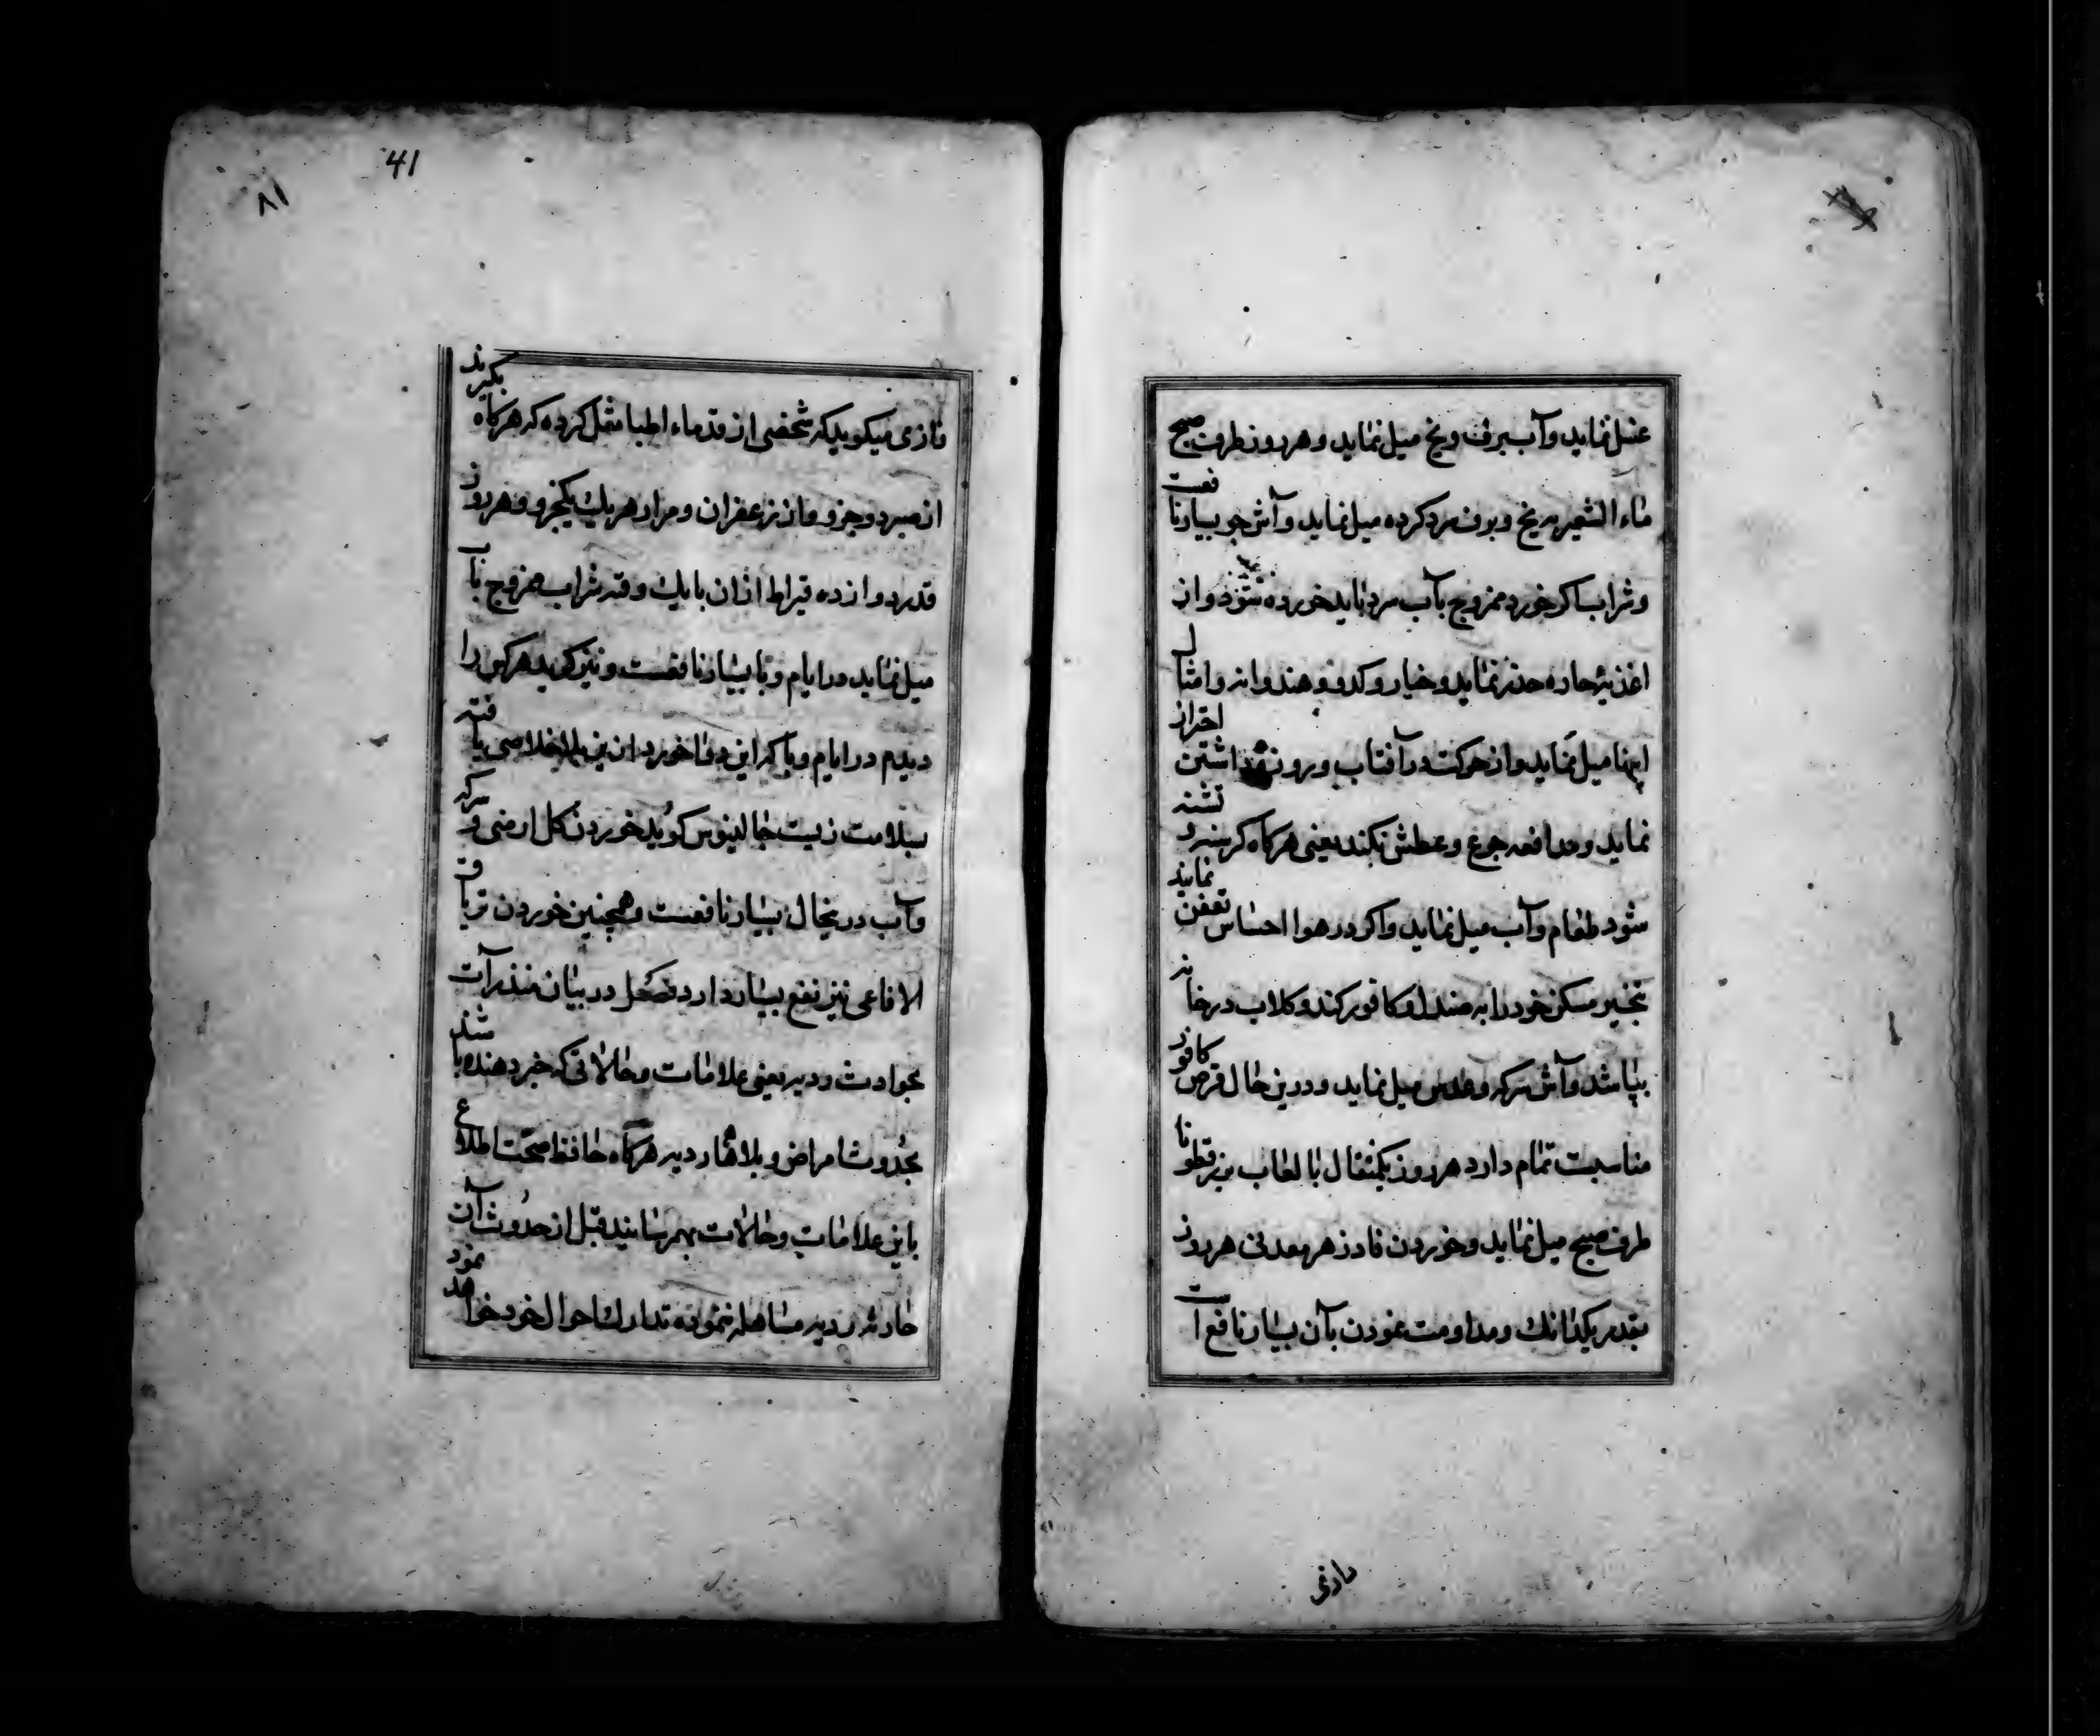 غسل نماید وآب برف ویخ میل نماید وهر روز طرف صبح
ماء الشعیر به یخ وبرف سرد کرده میل نماید وآش جو بسیار نافعست
وشراب اکر خورد ممزوج بآب سرد باید خورده شود واز
اغذیهٔ حاده حذر نماید وخیار وکدو وهندوانه وامثال
اینها میل نماید واز حرکت در آفتاب وروزه داشتن احتراز
نماید ومدافعه جوع وعطش نکند یعنی هرکاه کرسنه وتشنه
شود طعام وآب میل نماید واکر در هوا احساس تعفن نمایند
تبخیر مسکن خود را به صندل وکافور کند وکلاب در خانه
بپاشد وآش سرکه وعدس میل نماید ودرین حال قرص کافور
مناسبت تمام دارد هر روز یکمثقال با لعاب بزرقطونا
طرف صبح میل نماید وخوردن فادزهر معدنی هر روز
بقدر یکدانك ومداومت نمودن بآن بسیار نافع است
رازی
41
٨١
رازی میکوید که شخصی از قدماء اطبا نقل کرده که هرکاه بکیرند
از صبر دو جزو واز زعفران ومر از هریك یکجزو وهر روز
قدر دوازده قیراط ازان با یك وقیه شراب ممزوج بآب
میل نماید در ایام وبا بسیار نافعست ونیز کوید هرکس را
دیدم در ایام وبا که این دوا خورد ازین بلا خلاصی یافته
بسلامت زیست جالینوس کوید خوردن کل ارمنی وسرکه
وآب درینحال بسیار نافعست وهمچنین خوردن تریاق
الافاعی نیز نفع بسیار دارد فصل در بیان منذرات
بحوادث ردیه یعنی علامات وحالاتی که خبر دهنده باشند
بحدوث امراض وبلاهاء ردیه هرکاه حافظ صحت اطلاع
باین علامات وحالات بهمرسانید قبل از حدوث آن
حادثه ردیه مساهله ننموده تدارك احوال خود خواهد نمود